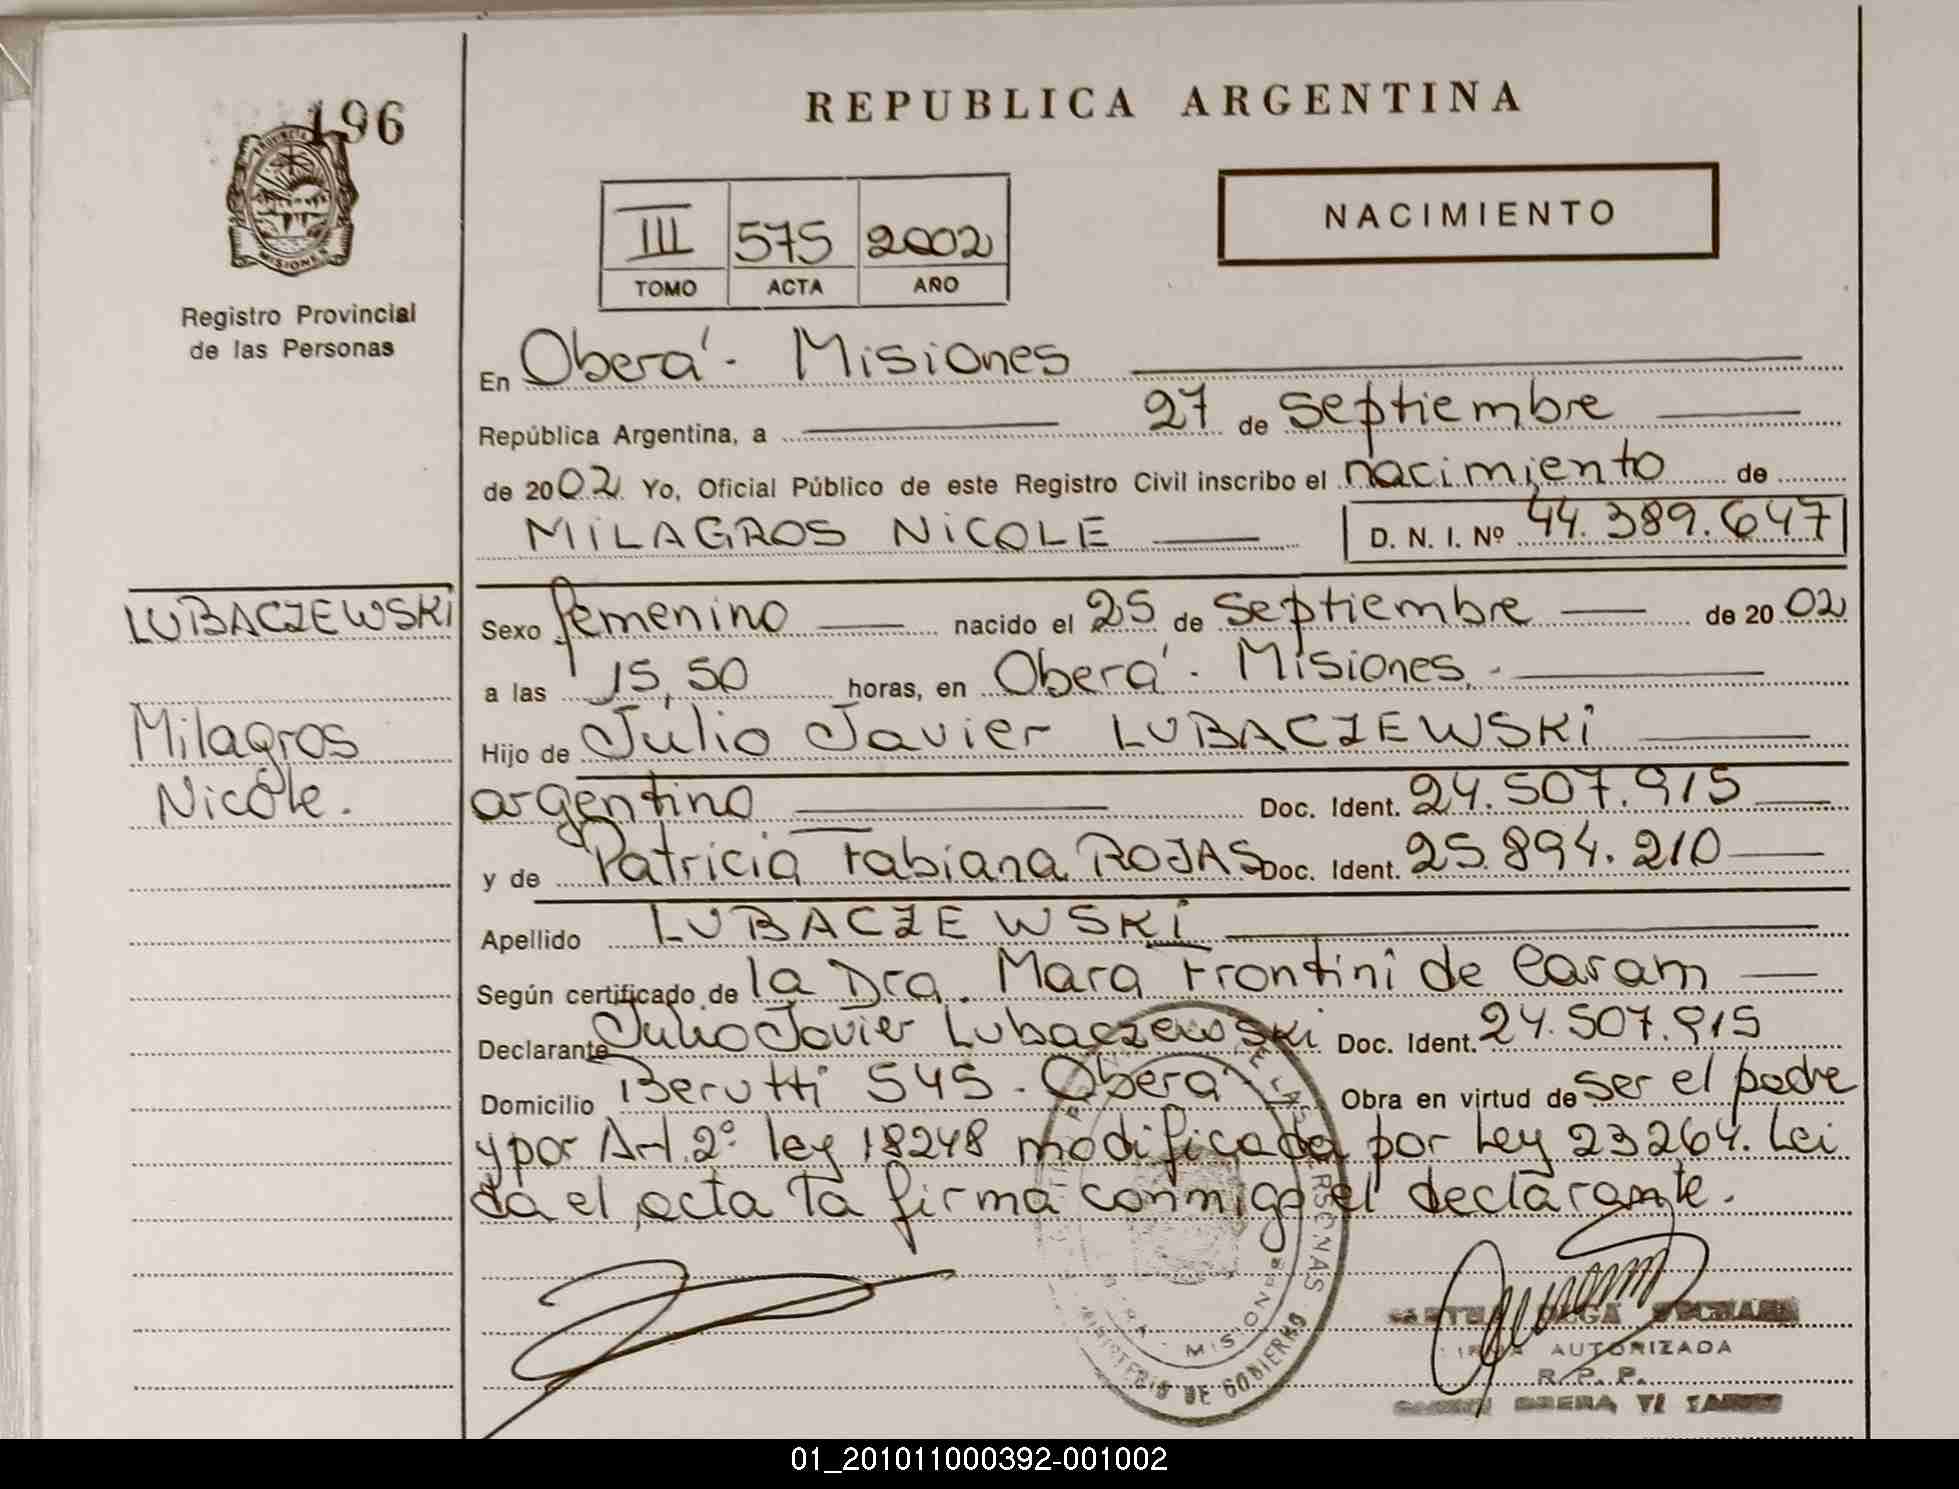 196
PROVINCIA
MISIONES
Registro Provincial
de las Personas
REPUBLICA ARGENTINA
NACIMIENTO
III 575 2002
TOMO ACTA AÑO
En Oberá - Misiones
República Argentina, a 27 de septiembre
de 2002 Yo, Oficial Público de este Registro Civil inscribo el nacimiento de
MILAGROS NICOLE D. N. I. Nº 44.389.647
LUBACZEWSKI
Milagros
Nicole.
Sexo femenino nacido el 25 de septiembre de 2002
a las 15,50 horas, en Oberá - Misiones.-
Hijo de Julio Javier LUBACZEWSKI
argentino Doc. Ident. 24.507.915
y de Patricia Fabiana ROJAS Doc. Ident. 25.894.210
Apellido LUBACZEWSKI
Según certificado de la Dra. Mara Frontini de Caram
Declarante Julio Javier Lubaczewski Doc. Ident. 24.507.915
Domicilio Berutti 545 - Oberá Obra en virtud de ser el padre
y por Art. 2º ley 18248 modificada por Ley 23264. Lei
da el acta la firma conmigo el declarante.
MISIONES
MINISTERIO DE GOBIERNO
AUTORIZADA
R. P. P.
01_201011000392-001002